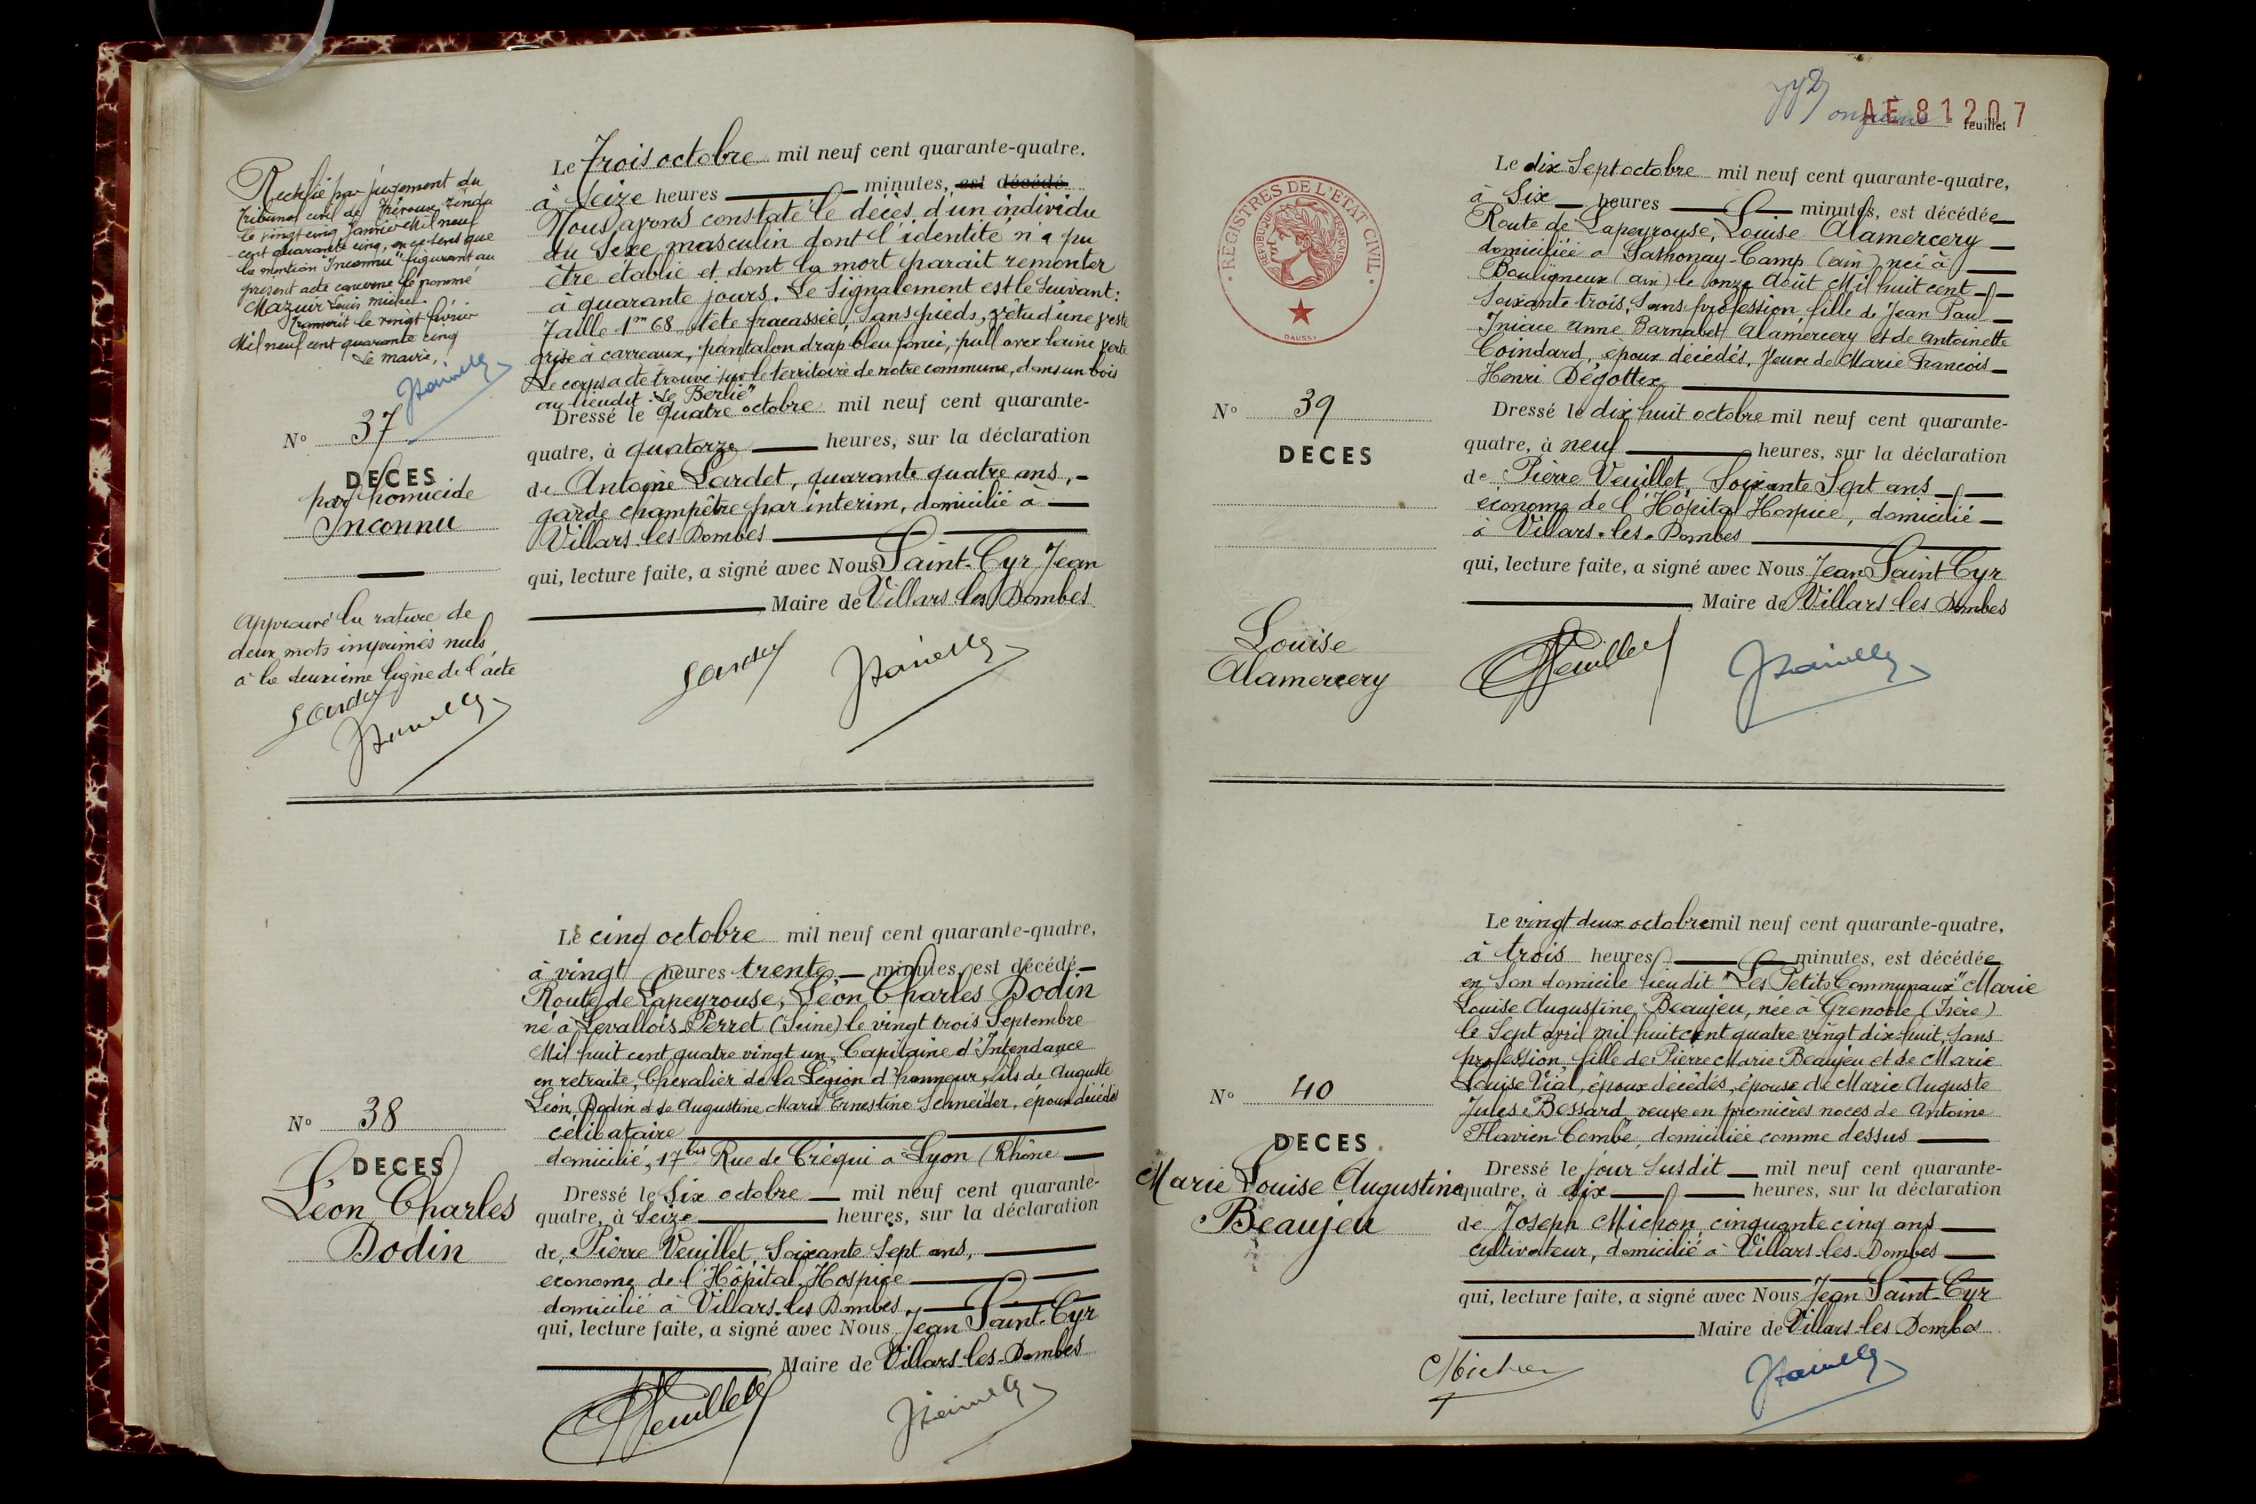 Rectifié par jugement du
Tribunal civil de Trévoux rendu
le vingt cinq Janvier Mil neuf
cent quarante cinq, en ce sens que
la mention "Inconnu" figurant au
présent acte concerne le nommé
Mazuir Louis Michel.
Transcrit le vingt février
Mil neuf cent quarante cinq
Le maire,
No 37
DECES
par homicide
Inconnu
Approuvé la rature de
deux mots imprimés nuls
à la deuxième ligne de l'acte
Le Trois octobre mil neuf cent quarante-quatre.
à Seize heures minutes, est décédé
Nous avons constaté le décès d'un individu
du Sexe masculin dont l'identité n'a pu
être établie et dont la mort parait remonter
à quarante jours. Le Signalement est le Suivant:
Taille 1m 68 tête fracassée, Sans pieds, vêtu d'une veste
grise à carreaux, pantalon drap bleu foncé, pull over laine verte
Le corps a été trouvé sur le territoire de notre commune, dans un bois
au lieudit "Le Berlié"
Dressé le quatre octobre mil neuf cent quarante-
quatre, à quatorze heures, sur la déclaration
de Antoine Lardet, quarante quatre ans,
garde champêtre par intérim, domicilié à
Villars les Dombes
qui, lecture faite, a signé avec Nous Saint-Cyr Jean
Maire de Villars les Dombes
No 38
DECES
Léon Charles
Dodin
Le cinq octobre mil neuf cent quarante-quatre,
à vingt heures trente minutes, est décédé
Route de Lapeyrouse, Léon Charles Dodin
né à Levallois-Perret (Seine) le vingt trois Septembre
Mil huit cent quatre vingt un, Capitaine d'Intendance
en retraite, Chevalier de la Légion d'honneur, fils de Auguste
Léon Dodin et de Augustine Marie Ernestine Schneider, époux décédés
célibataire
domicilié, 17bis Rue de Créqui à Lyon (Rhône
Dressé le Six octobre mil neuf cent quarante-
quatre, à Seize heures, sur la déclaration
de Pierre Veuillet, Soixante Sept ans,
econome de l'Hôpital-Hospice
domicilié à Villars les Dombes,
qui, lecture faite, a signé avec Nous Jean Saint-Cyr
Maire de Villars-les-Dombes
AE 81207
onzième feuillet
REGISTRES DE L'ETAT CIVIL
REPUBLIQUE FRANÇAISE
DAUSSY
No 39
DECES
Louise
Alamercery
Le dix Sept octobre mil neuf cent quarante-quatre,
à Six heures minutes, est décédée
Route de Lapeyrouse, Louise Alamercery
domiciliée à Sathonay-Camp (ain) née à
Bouligneux (ain) le onze Août Mil huit cent
Soixante trois, Sans profession, fille de Jean Paul
Iniace Anne Barnabet Alamercery et de Antoinette
Coindard, époux décédés, Veuve de Marie François
Henri Dégottex
Dressé le dix huit octobre mil neuf cent quarante-
quatre, à neuf heures, sur la déclaration
de Pierre Veuillet, Soixante Sept ans
econome de l'Hôpital Hospice, domicilié
à Villars-les-Dombes
qui, lecture faite, a signé avec Nous Jean Saint-Cyr
Maire de Villars-les Dombes
No 40
DECES
Marie Louise Augustine
Beaujeu
Le vingt deux octobre mil neuf cent quarante-quatre,
à trois heures minutes, est décédée
en Son domicile lieudit "Les Petits Communaux" Marie
Louise Augustine Beaujeu, née à Grenoble (Isère)
le Sept avril mil huit cent quatre vingt dix-huit, Sans
profession, fille de Pierre Marie Beaujeu et de Marie
Louise Vial, époux décédés, épouse de Marie Auguste
Jules Bessard, veuve en premières noces de Antoine
Flavien Combe, domiciliée comme dessus
Dressé le jour Susdit mil neuf cent quarante-
quatre, à dix heures, sur la déclaration
de Joseph Michon, cinquante cinq ans
cultivateur, domicilié à Villars-les-Dombes
qui, lecture faite, a signé avec Nous Jean Saint-Cyr
Maire de Villars-les Dombes